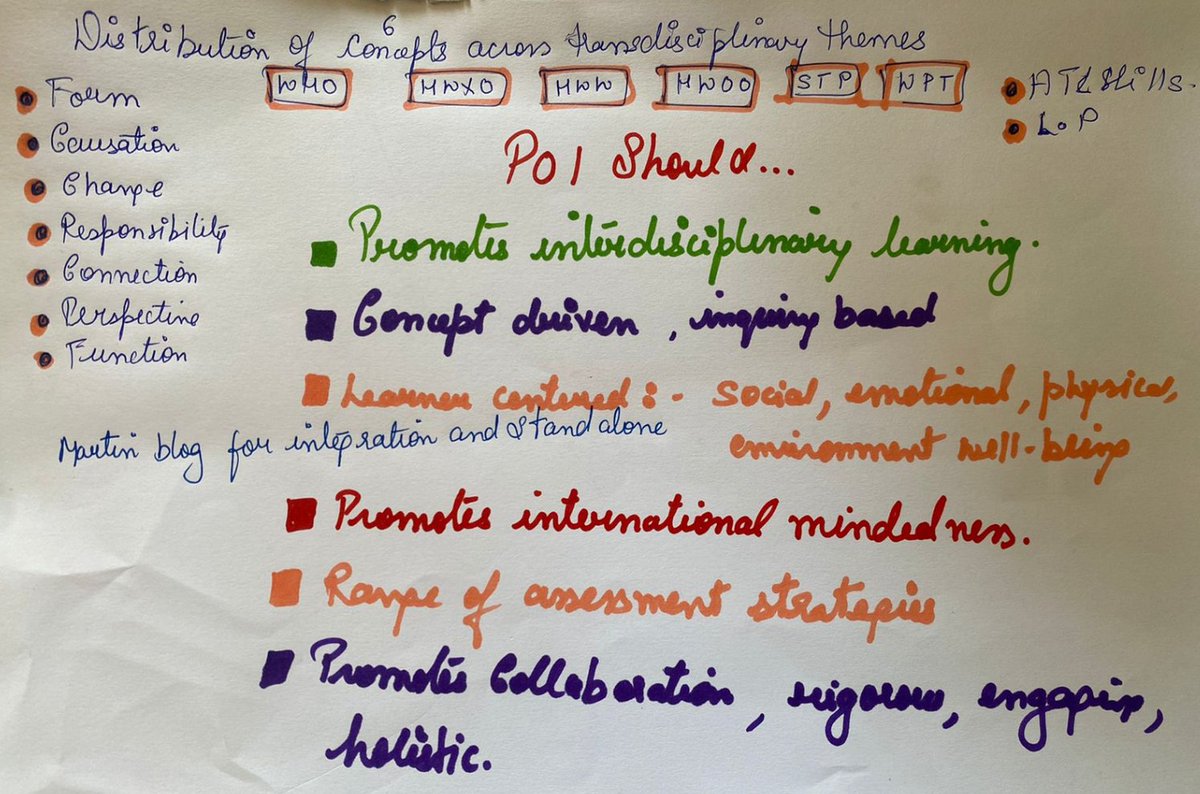 Distribution of 6 concepts across transdisciplinary themes
WMO HWXO HWW HWOO STP WPT
Form
Causation
Change
Responsibility
Connection
Perspective
Function
ATL Skills.
LoP
POI Should...
Promotes interdisciplinary learning.
Concept driven, inquiry based
Learner centered :- social, emotional, physical,
environment well-being
Martin blog for integration and Stand alone
Promotes international mindedness.
Range of assessment strategies
Promotes Collaboration, rigorow, engaging,
holistic.